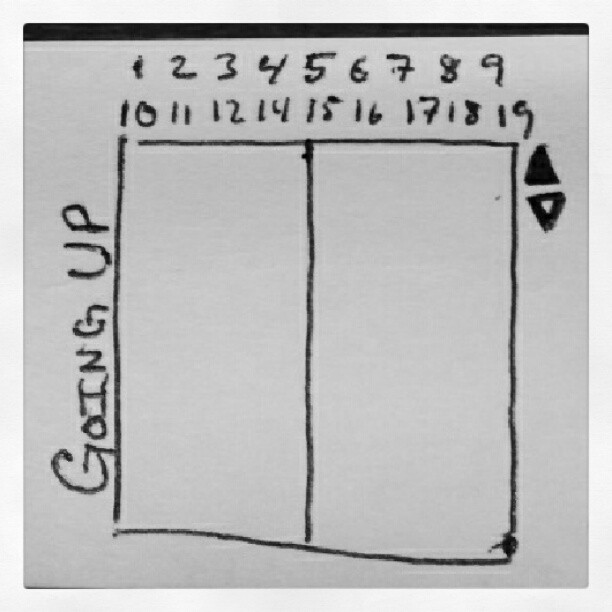 1 2 3 4 5 6 7 8 9
10 11 12 14 15 16 17 18 19
GOING UP